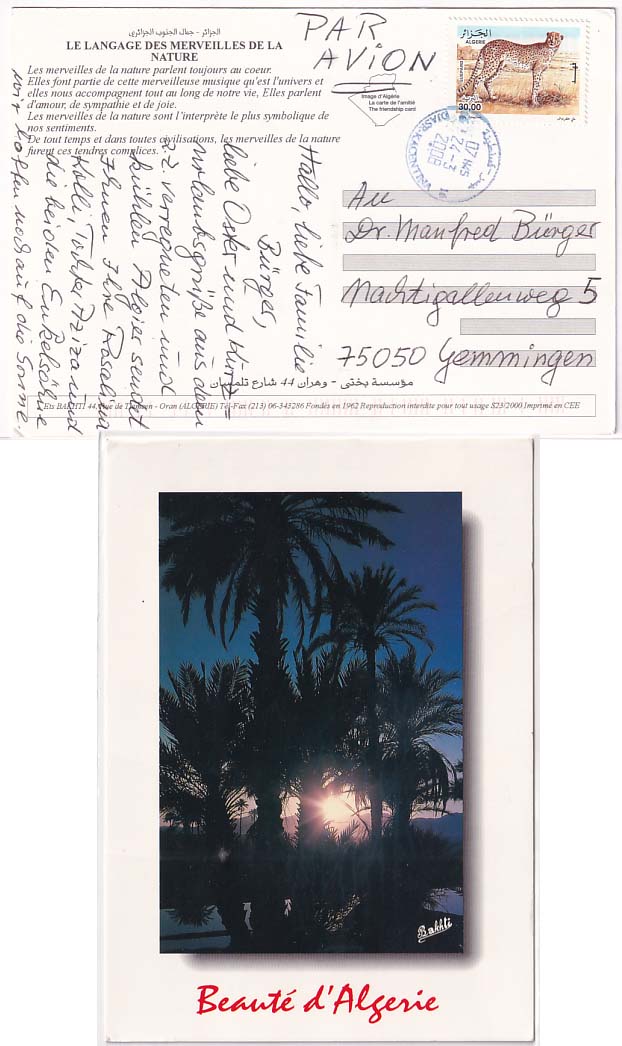 الجزائر - جمال الجنوب الجزائري
LE LANGAGE DES MERVEILLES DE LA
NATURE
Les merveilles de la nature parlent toujours au coeur.
Elles font partie de cette merveilleuse musique qu'est l'univers et
elles nous accompagnent tout au long de notre vie, Elles parlent
d'amour, de sympathie et de joie.
Les merveilles de la nature sont l’interprète le plus symbolique de
nos sentiments.
De tout temps et dans toutes civilisations, les merveilles de la nature
furent ces tendres complices.
PAR
AVION
Image d'Algérie
La carte de l'amitié
The friendship card
الجزائر
ALGERIE
30.00
Hallo, liebe Familie
Bürger,
liebe Oster und Kurz-
urlaubsgrüße aus dem
z.Z. verregneten und
kühlen Algier sendet
Ihnen Ihre Roselina
Kolli, Tochter Aziza und
die beiden Enkelsöhne
wir hoffen noch auf die Sonne!
An
Dr. Manfred Bürger
Nachtigallenweg 5
75050 Gemmingen
مؤسسة بختي - وهران 44 شارع تلمسان
Ets BAKHTI 44, Rue de Tlemcen - Oran (ALGERIE) Tél-Fax (213) 06-343286 Fondés en 1962 Reproduction interdite pour tout usage S23/2000 Imprimé en CEE
Bakhti
Beauté d'Algerie